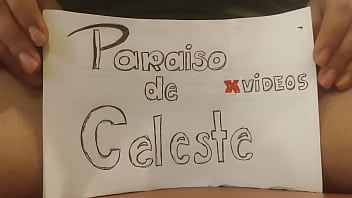 Paraiso
de XVIDEOS
Celeste